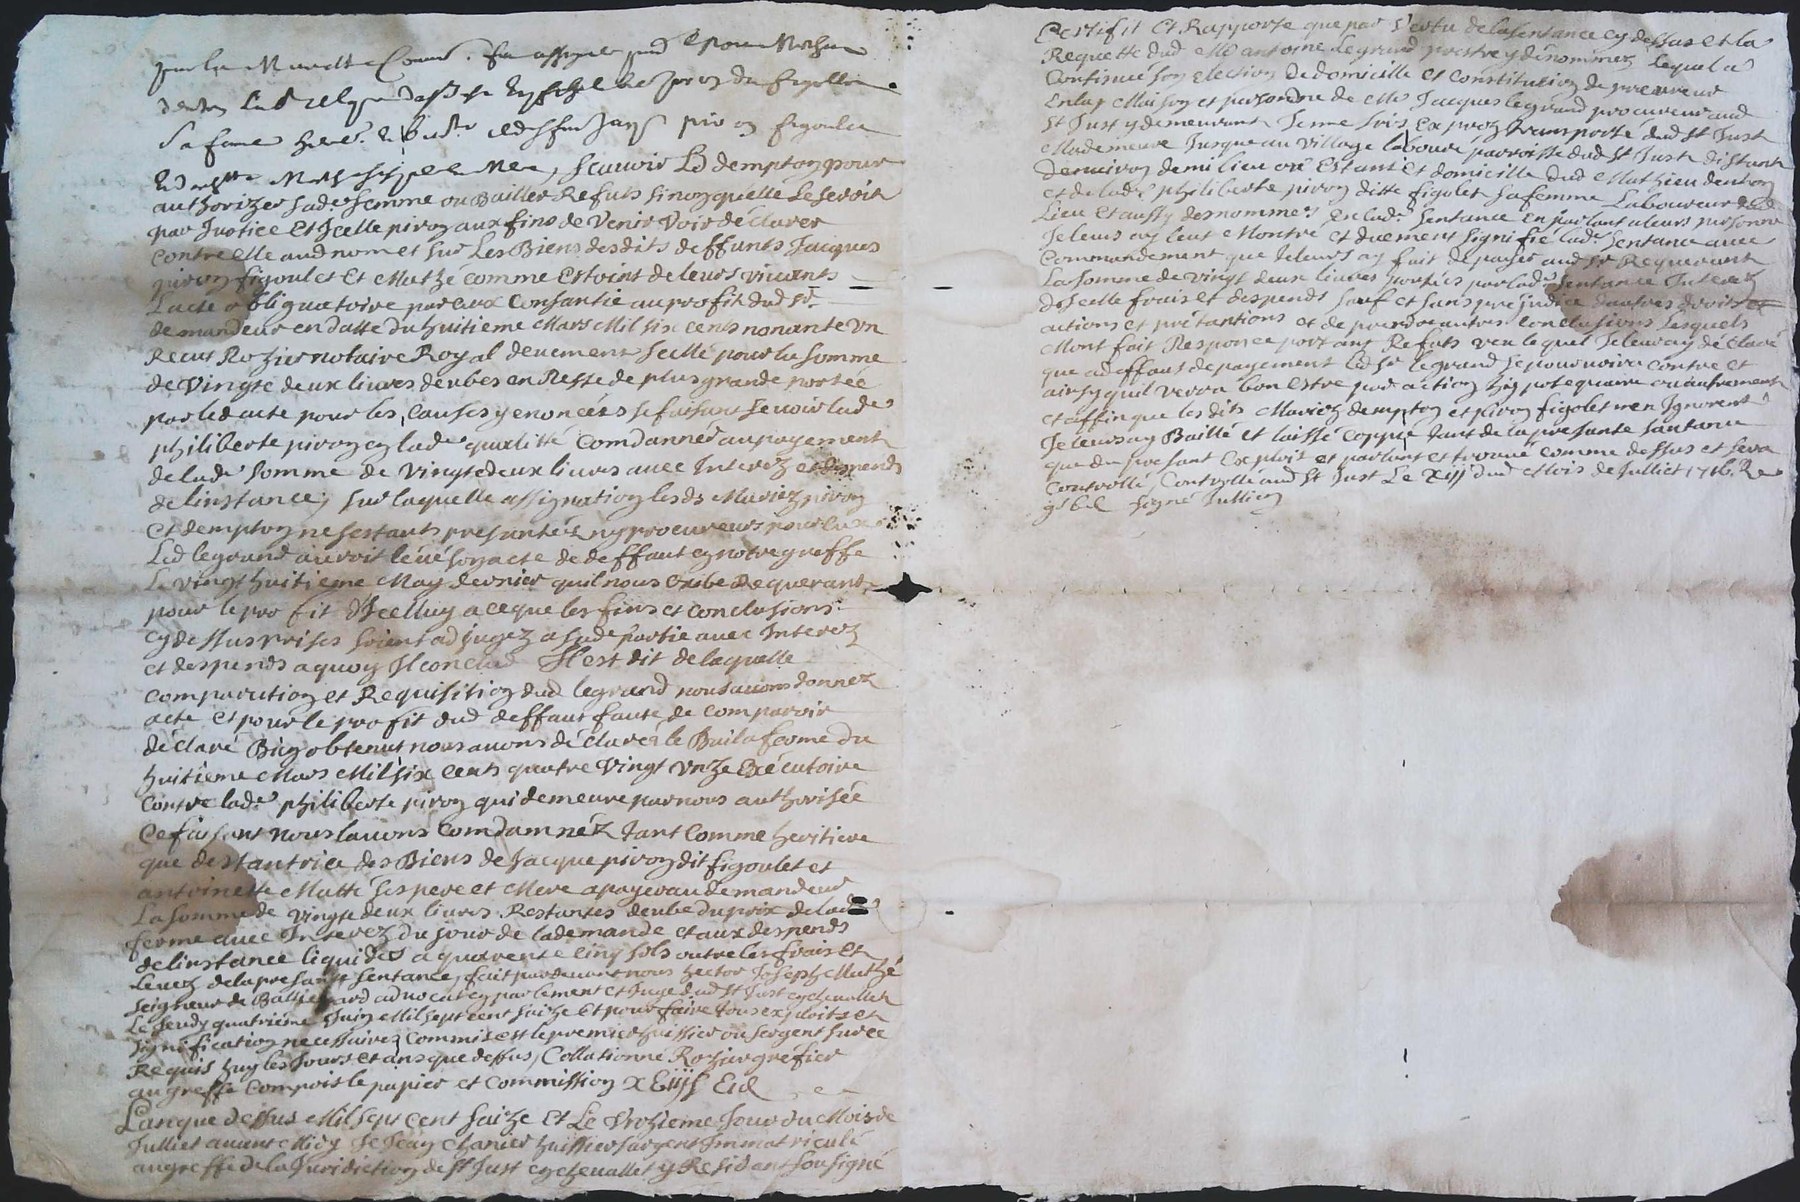 authorizer sade femme ou Bailler Refuts sinon quelle le seroit
par Justice Et Icelle piron aux fins de Venir Voir déclarer
contre elle aud nom et sur Les Biens desdits deffunts Jacques
piron figoulet Et Matze comme Estoint de leurs vivants
Lacte obliguatoire par eux consantie au profit dud sr
demandeur en datte du huitieme Mars Mil six cents nonante un
Receu Rozier notaire Royal deuement scellé pour la somme
de Vingte deux liures deubes en Reste de plus grande portée
par led acte pour les causes y enoncées se faisant se voir lade
philiberte piron en lade qualitté Comdannéé au payement
de lade somme de Vingtedeux liures auec Interez et despends
de linstance, sur laquelle assignation lesds Mariez piron
et dempton ne sestants presantéz ny procureurs pour Eux
Led legrand auroit leué son acte de deffaut en notre greffe
Le vingt huitieme May dernier quil nous Exibe Requerant
pour le profit dIcelluy a ceque les fins et conclusions
cydessus prises soient adjugez a sade partie auec Interez
et despends a quoy Il conclud Il est dit de laquelle
comparution et Requisition dud legrand nous auons donnez
acte Et pour le profit dud deffaut faute de comparoir
déclaré Bien obtenut nous auons déclarér le Bail a ferme du
huitieme Mars Mil six cents quatre Vingt Unze Exécutoire
Contre lade philiberte piron qui demeure par nous authorisée
Ce faisant nous lauons Comdamnéz tant Comme heritiere
que destantrice des Biens de Jacque piron dit figoulet et
antoinette Matte ses pere et Mere a payer au demandeur
La somme de vingte deux liures Restantes deube du prix de lade
ferme auec Interez du jour de la demande et aux despends
de linstance liquides a quarente cinq sols outre les frais et
leuez de la presante Sentance, fait par deuant nous hector Joseph Mathé
Seigneur de aduocat en parlement et Juge dud St Just en cheuallet
Le Jeudy quatrième Juin Mil sept cent saize Et pour faire tous exploits et
signification necessaires commis est le premier huissier ou sergent sur ce
Requis huy les Jours et ans que dessus, Collationné Rozier greffier
au greffe compris le papier et commission
Lan que dessus Mil sept cent saize Et Le Unzieme Jour du Mois de
Julliet auant Midy Je Jean Chanier huissier sargent Immatriculé
au greffe de la Juridiction de St Just en cheuallet y Residant sousigné
Certifit Et Rapporte que par Vertu de la sentance cy dessus et la
Requette dud Me antoine Legrand prestre y dénommez lequel a
Continué son election de domicille et constitution de procureur
En la Maison et personne de Me Jacques legrand procureur aud
St Just y demeurant Je me suis Exprez transporté dud St Just
Madem­eure Jusque au Village labouré parroisse dud St Just distant
denuiron demi lieu ou Estant Et domicille dud Mathieu dempton
et de lade philiberte piron ditte figolet sa femme Laboureur dud
Lieu Et aussy desnommés En lade Sentance En parlant a leurs personne
Je leurs ay leut Montré et duement signifié lade Sentance auec
Commandement que Jeleurs ay fait de payer aud sr Requerant
La somme de vingt deux liures portées par lade Sentance Interez
dIcelle frais et despends sauf et sans prejudice dautres droits
actions et prétantions et de prendre autres conclusions lesquels
Mont fait Responce portant Refuts veu lequel Jeleur ay déclaré
que a deffaut de payement led sr legrand se pouruoira contre et
ainsy quil verra bon estre par action hippotequaire ou autrement
et affin que lesdits Mariez dempton et piron figolet nen Ignorent
Je leurs ay Baillé et laissé coppie tant de la presante Santance
que du presant Exploit et parlant et trouué comme dessus et sera
Controllé Controllé aud St Just Le XIII dud Mois de Julliet 1716. Re
signé Jullien